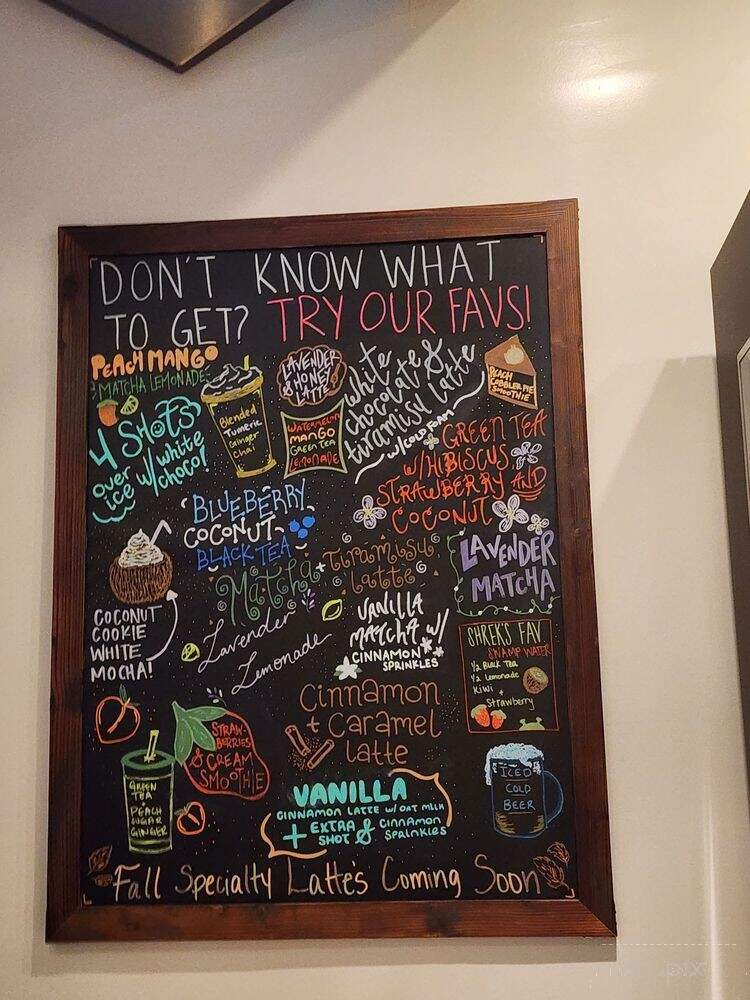 DON'T KNOW WHAT
TO GET? TRY OUR FAVS!
PEACH MANGO
MATCHA LEMONADE
4 SHOTS
over
ice w/ white
choco!
Blended
Tumeric
Ginger
Chai
LAVENDER
& HONEY
LATTE
WATERMELON
MANGO
GREEN TEA
LEMONADE
white
chocolate &
tiramisu latte
w/ COLD FOAM
PEACH
COBBLER PIE
SMOOTHIE
GREEN TEA
w/ HIBISCUS
STRAWBERRY AND
COCONUT
BLUEBERRY
COCONUT
BLACK TEA
Matcha + Tiramisu
latte
LAVENDER
MATCHA
COCONUT
COOKIE
WHITE
MOCHA!
Lavender
Lemonade
VANILLA
MATCHA w/
CINNAMON
SPRINKLES
SHREK'S FAV
SWAMP WATER
1/2 Black Tea
1/2 Lemonade
Kiwi
+
Strawberry
Cinnamon
+ Caramel
latte
STRAW-
BERRIES
& CREAM
SMOOTHIE
GREEN
TEA
+
PEACH
SUGAR
GINGER
ICED
COLD
BEER
VANILLA
CINNAMON LATTE w/ OAT MILK
+ EXTRA SHOT & Cinnamon
Sprinkles
Fall Specialty Latte's Coming Soon